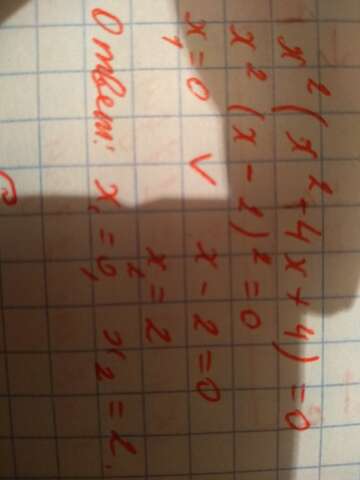 x² (x² - 4x + 4) = 0
x² (x - 2)² = 0
x₁ = 0 V x - 2 = 0
x₂ = 2
Ответ: x₁ = 0, x₂ = 2.